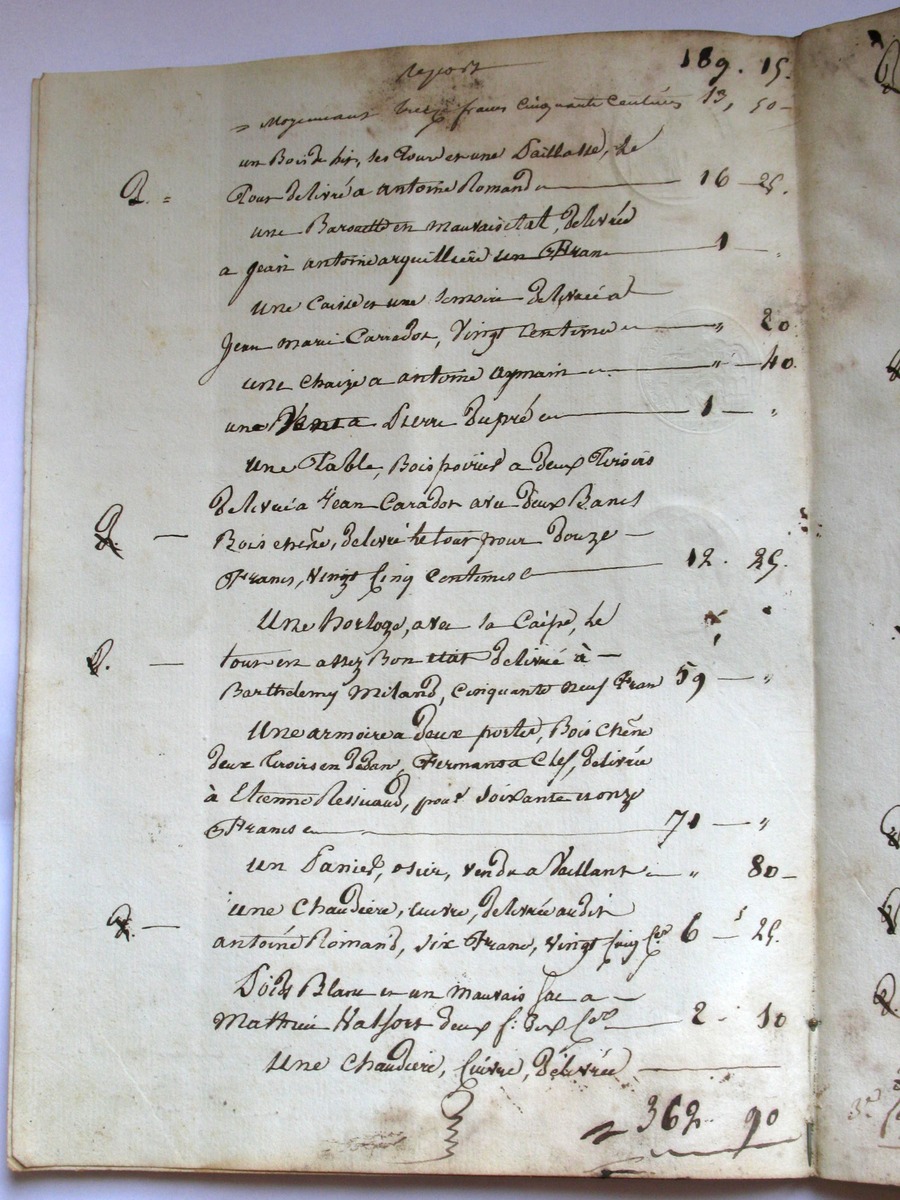 report 189. 15.
Moyennant treize francs cinquante centimes 13, 50
un Bois de lit, ses Tour et une Paillasse, le
2. = Tour delivré a antoine Romand 16 25.
une Barouette en mauvais etat, delivrée
a Jean antoine arquilliere un Franc 1 "
Une Caisse et une semoire delivrée a
Jean Marie Carradot, Vingt Centimes " 20
une chaize a antoine aymain " 40.
une a Pierre Dupré 1 "
Une Table, Bois poirier a deux Tiroirs
delivrée a Jean Caradot avec deux Bancs
2. Bois chêne, delivré le tour pour douze
Francs, vingt Cinq Centimes 12. 25.
Une horloge, avec sa Caisse, le
2. tour en assez Bon etat delivré à
Barthelemy Miland, Cinquante neuf Fran 59 "
Une armoire a deux portes, Bois chêne
deux tiroirs en dedan, Fermant a Clef, delivrée
à Etienne Ressicaud, pour soixante et onze
Francs 71 "
un Panier, osier, vendu a Vaillant " 80
une Chaudière, cuivre, delivrée audit
2. antoine Romand, six Franc, vingt Cinq Ces 6 25.
Poids Blanc et un mauvais sac a
Mathieu deux f. dix Ces 2 10
Une Chaudière, Cuivre, délivrée
362. 90